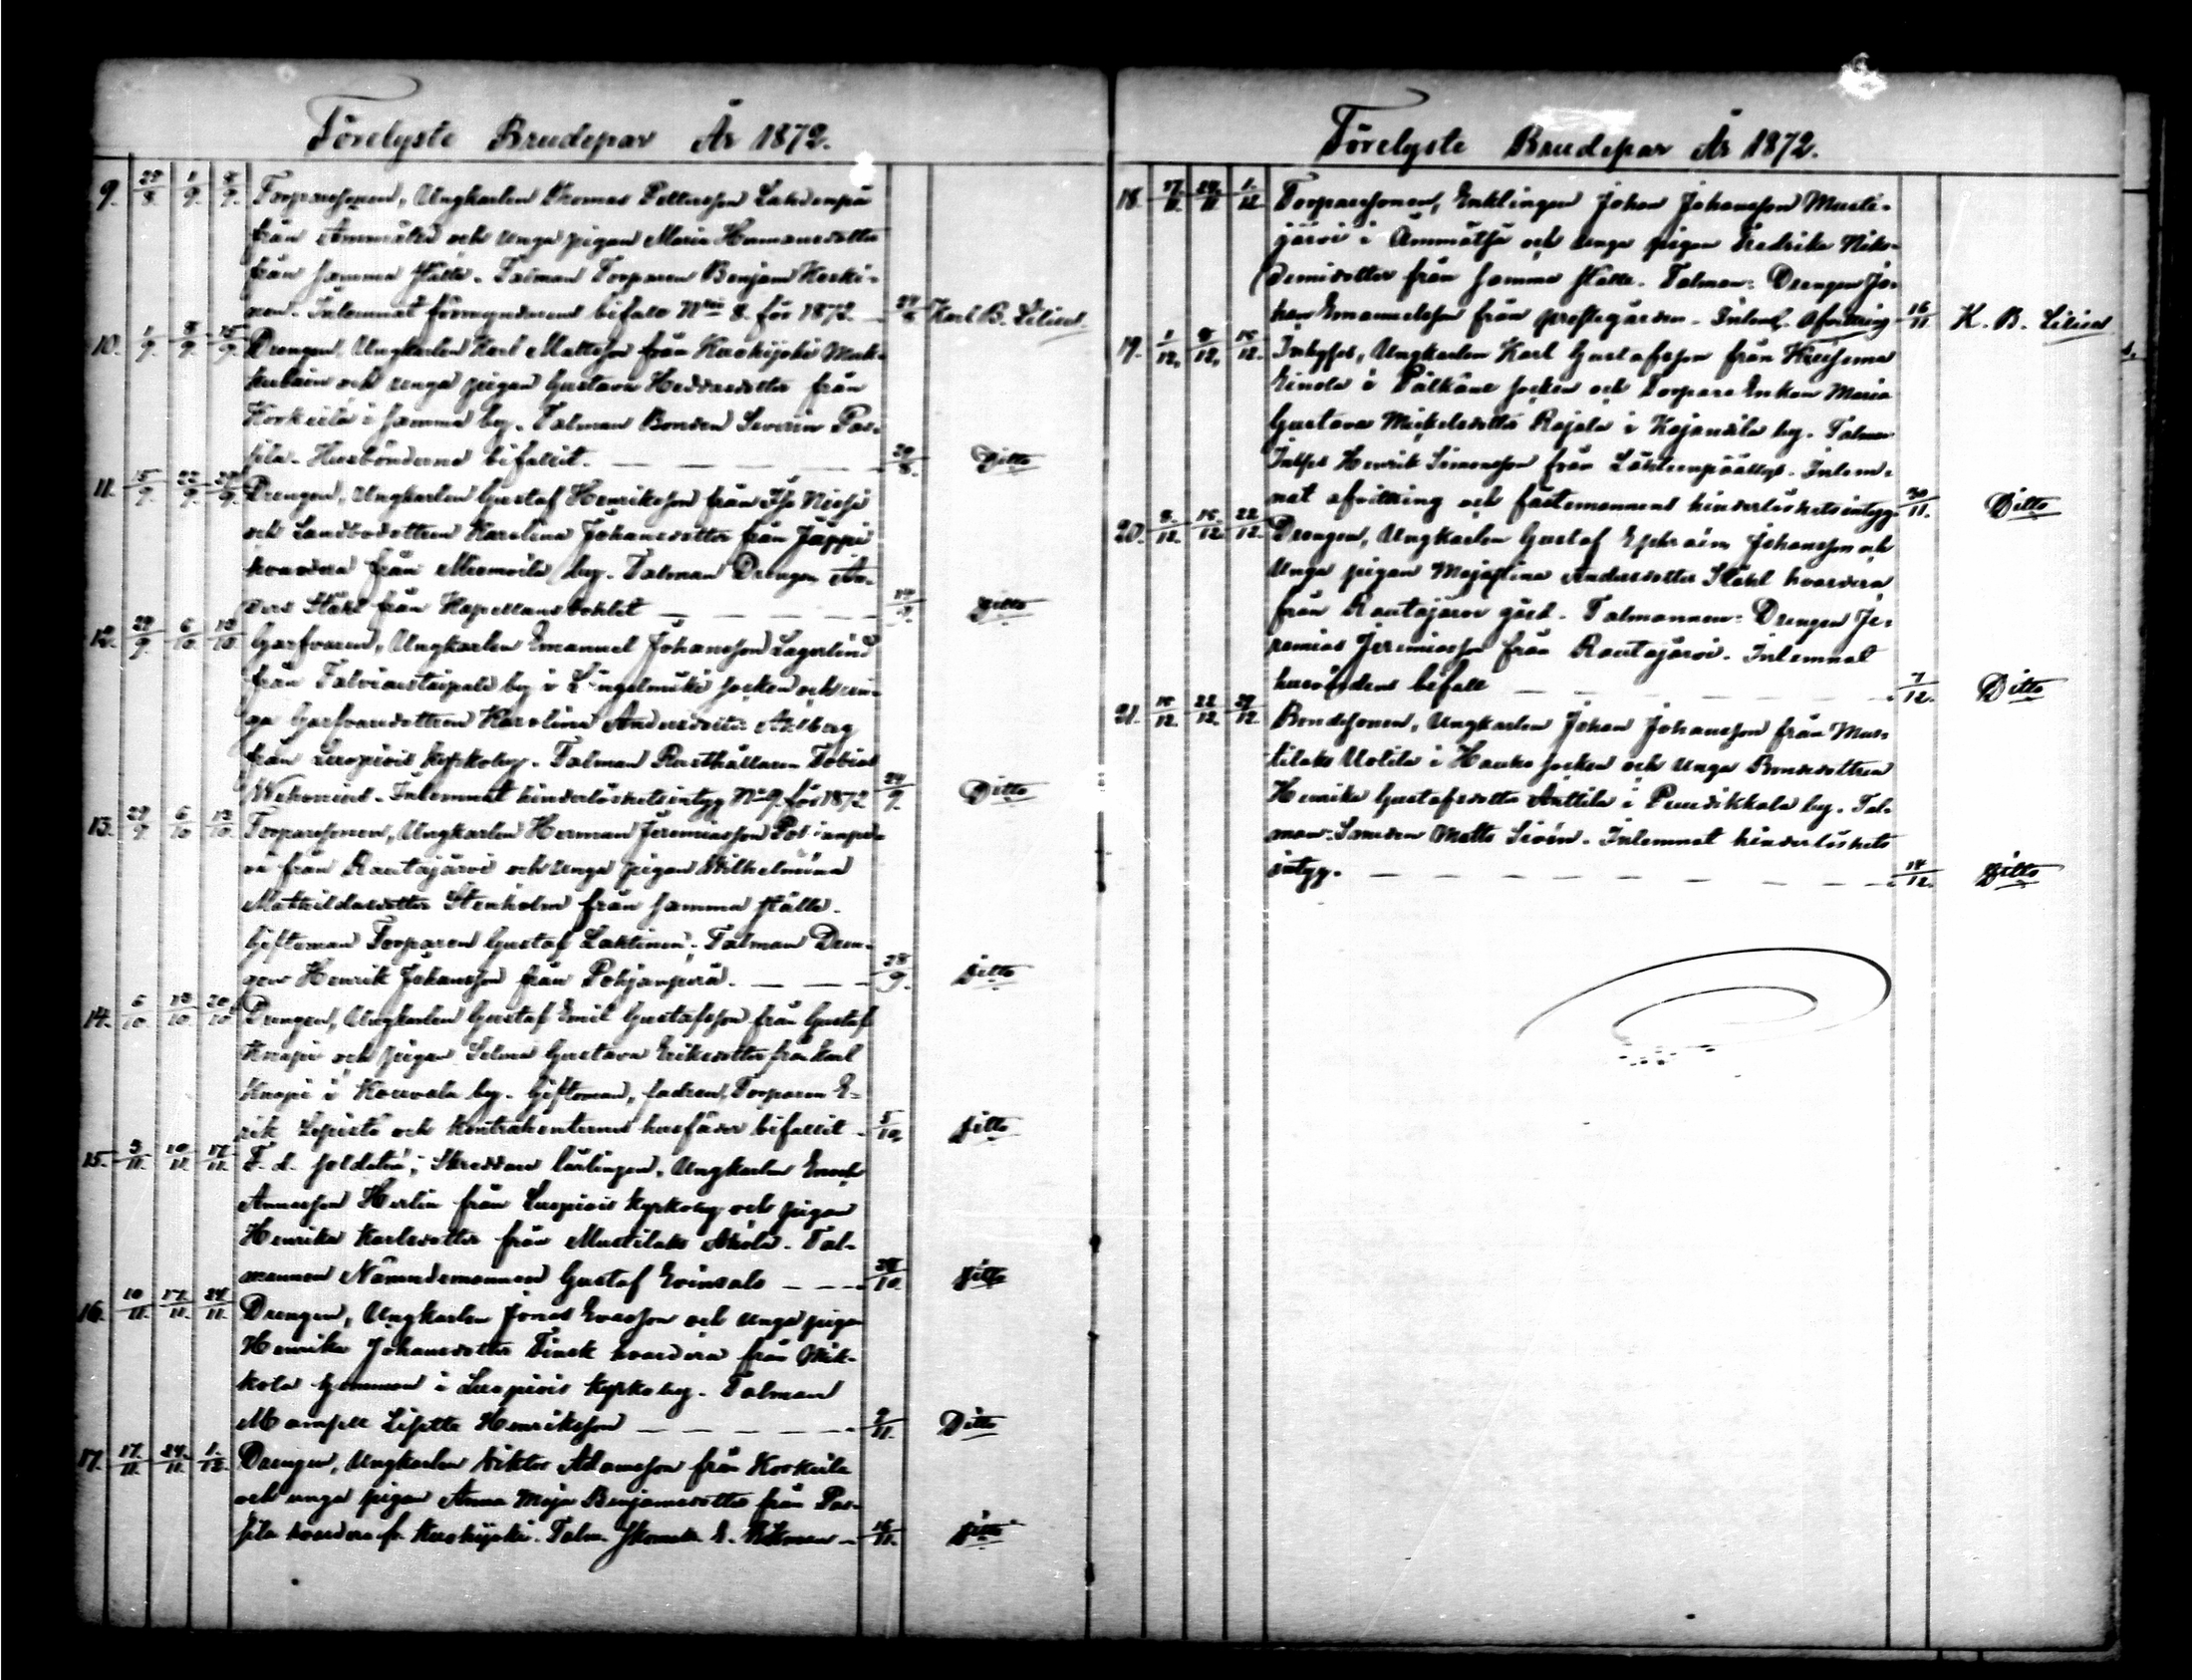 Förelyste Brudepar År 1872.
9. 25/8. 1/9. 8/9. Torparesonen, Ungkarlen Thomas Pettersson Lahdenpä
från Ämmätsä och unga pigan Maria Hermansdotter
från samma ställe. Talman Torparen Benjam Keski-
nen. Inlemnat förmyndarens bifall N:o 8. för 1872 Karl B. Lilius.
10. 1/9. 8/9. 15/9. Drengen, Ungkarlen Karl Mattsson från Kuohijoki
och unga pigan Gustava från
Korkeila i samma by. Talman Bonden Severin Pas-
sila. Husböndernas bifallit. Ditto
11. 15/9. 22/9. 29/9. Drengen, Ungkarlen Gustaf Henriksson från Iso Niessi
och Landbodottren Karolina Johansdotter från Jäppi
hvardera från by. Talman Drengen An-
ders Ståhl från Kapellansbohlet Ditto
12. 29/9. 6/10. 13/10. Garfvaren, Ungkarlen Emanuel Johansson Lagerlind
från Talviaistaipale by i Längelmäki socken och un-
ga Garfvaredottren Karolina Andersdotter Ahlberg
från Luopiois kyrkoby. Talman Rusthållaren Tobias
Inlemnat hinderlöshetsintyg N:o 9 för 1872 24/9. Ditto
13. 29/9 6/10 13/10. Torparesonen, Ungkarlen Herman Jeremiasson Pohjanpe-
rä från Rautajärvi och unga pigan Wilhelmina
Mathildasdotter Stenholm från samma ställe.
Giftoman Torparen Gustaf Lahtinen; Talman Dren-
gen Henrik Johansson från Pohjanperä. 28/9. Ditto
14. 6/10. 13/10. 20/10. Drengen, Ungkarlen Gustaf Emil Gustafsson från Gustaf
Knapi och pigan Selma Gustava Eriksdotter från Karl
Knapi i Kouvala by. Giftoman, fadren, Torparen E-
rik Lepistö och kontrahenternas husfäder bifallit 5/10. Ditto
15. 3/11. 10/11. 17/11. F. d. soldaten, Skreddare lärlingen, Ungkarlen Enoch
Annasson Herlin från Luopiois kyrkoby och pigan
Henrika Karlsdotter från Mustilaks Ahola. Tal-
mannen Nämndemannen Gustaf Evinsalo Ditto
16. 10/11. 17/11. 24/11. Drengen, Ungkarlen Jonas Evasson och unga pigan
Henrika Johansdotter Finck hvardera från Mik-
kola hemman i Luopiois kyrkoby. Talman
Mamsell Lisette Henriksson 9/11. Ditto
17. 17/11. 24/11. 1/12. Drengen, Ungkarlen Viktor Adamsson från Korkeila
och unga pigan Anna Maja Benjamsdotter från Pas-
sila hvardera fr. Kuohijoki. Talm. Skomak. E. 16/11. Ditto
Förelyste Brudepar År 1872.
18. 17/11. 24/11. 1/12. Torparesonen, Enklingen Johan Johansson Musti-
järvi i Ämmätsä och unga pigan Fredrika Niko-
demidotter från samma ställe. Talman: Drengen Jo-
han Emanuelsson från prestegården. Inlemn. Afvittring 16/11. K. B. Lilius
19. 1/12. 8/12. 15/12. Inhyses, Ungkarlen Karl Gustafsson från
Einola i Pälkäne socken och Torpare Enkan Maria
Gustava Mickelsdotter Rajala i Kajandila by. Talman
Inhyses Henrik Simonsson från Inlem-
nat afvittring och fästemannens hinderlöshetsintyg 30/11. Ditto
20. 8/12. 15/12. 22/12. Drengen, Ungkarlen Gustaf Ephraim Johansson och
Unga pigan Majastina Andersdotter Ståhl hvardera
från Rautajärvi gård. Talmannen: Drengen Je-
remias Jeremiasson från Rautajärvi. Inlemnat
husbondens bifall 7/12. Ditto
21. 15/12. 22/12. 29/12. Bondesonen, Ungkarlen Johan Johansson från Mus-
tilaks Uotila i Hauho socken och Unga Bondedottren
Henrika Gustafsdotter Anttila i Puudikkala by. Tal-
man: Matts Sivén. Inlemnat hinderlöshets
intyg. 14/12. Ditto